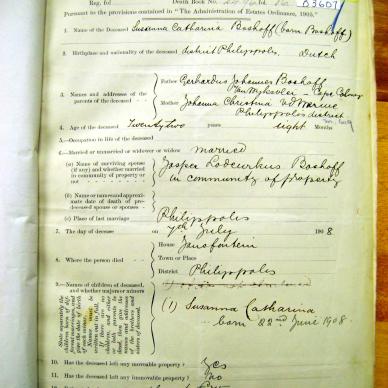 Reg. fol
Death Book No.
D3607
Pursuant to the provisions contained in "The Administration of Estates Ordinance, 1905."
1. Name of the Deceased Susanna Catharina Boshoff (born Boshoff)
2. Birthplace and nationality of the deceased district Philippolis, Dutch
3. Names and addresses of the parents of the deceased
Father Gerhardus Johannes Boshoff
Cape Colony
Mother Johanna Christina v d Merwe
Philippolis district
4. Age of the deceased Twenty two years eight Months
5.—Occupation in life of the deceased
6.—Married or unmarried or widower or widow married
(a) Name of surviving spouse (if any) and whether married in community of property or not
Jasper Boshoff
in community of property
(b) Name or names and approximate date of death of pre-deceased spouse or spouses
(c) Place of last marriage Philippolis
7. The day of decease on 7th July 1908
8. Where the person died
House Jansfontein
Town or Place
District Philippolis
9.—Names of children of deceased, and whether majors or minors
(1) Susanna Catharina
born 22nd June 1908
10. Has the deceased left any movable property? yes
11. Has the deceased left any immovable property? no